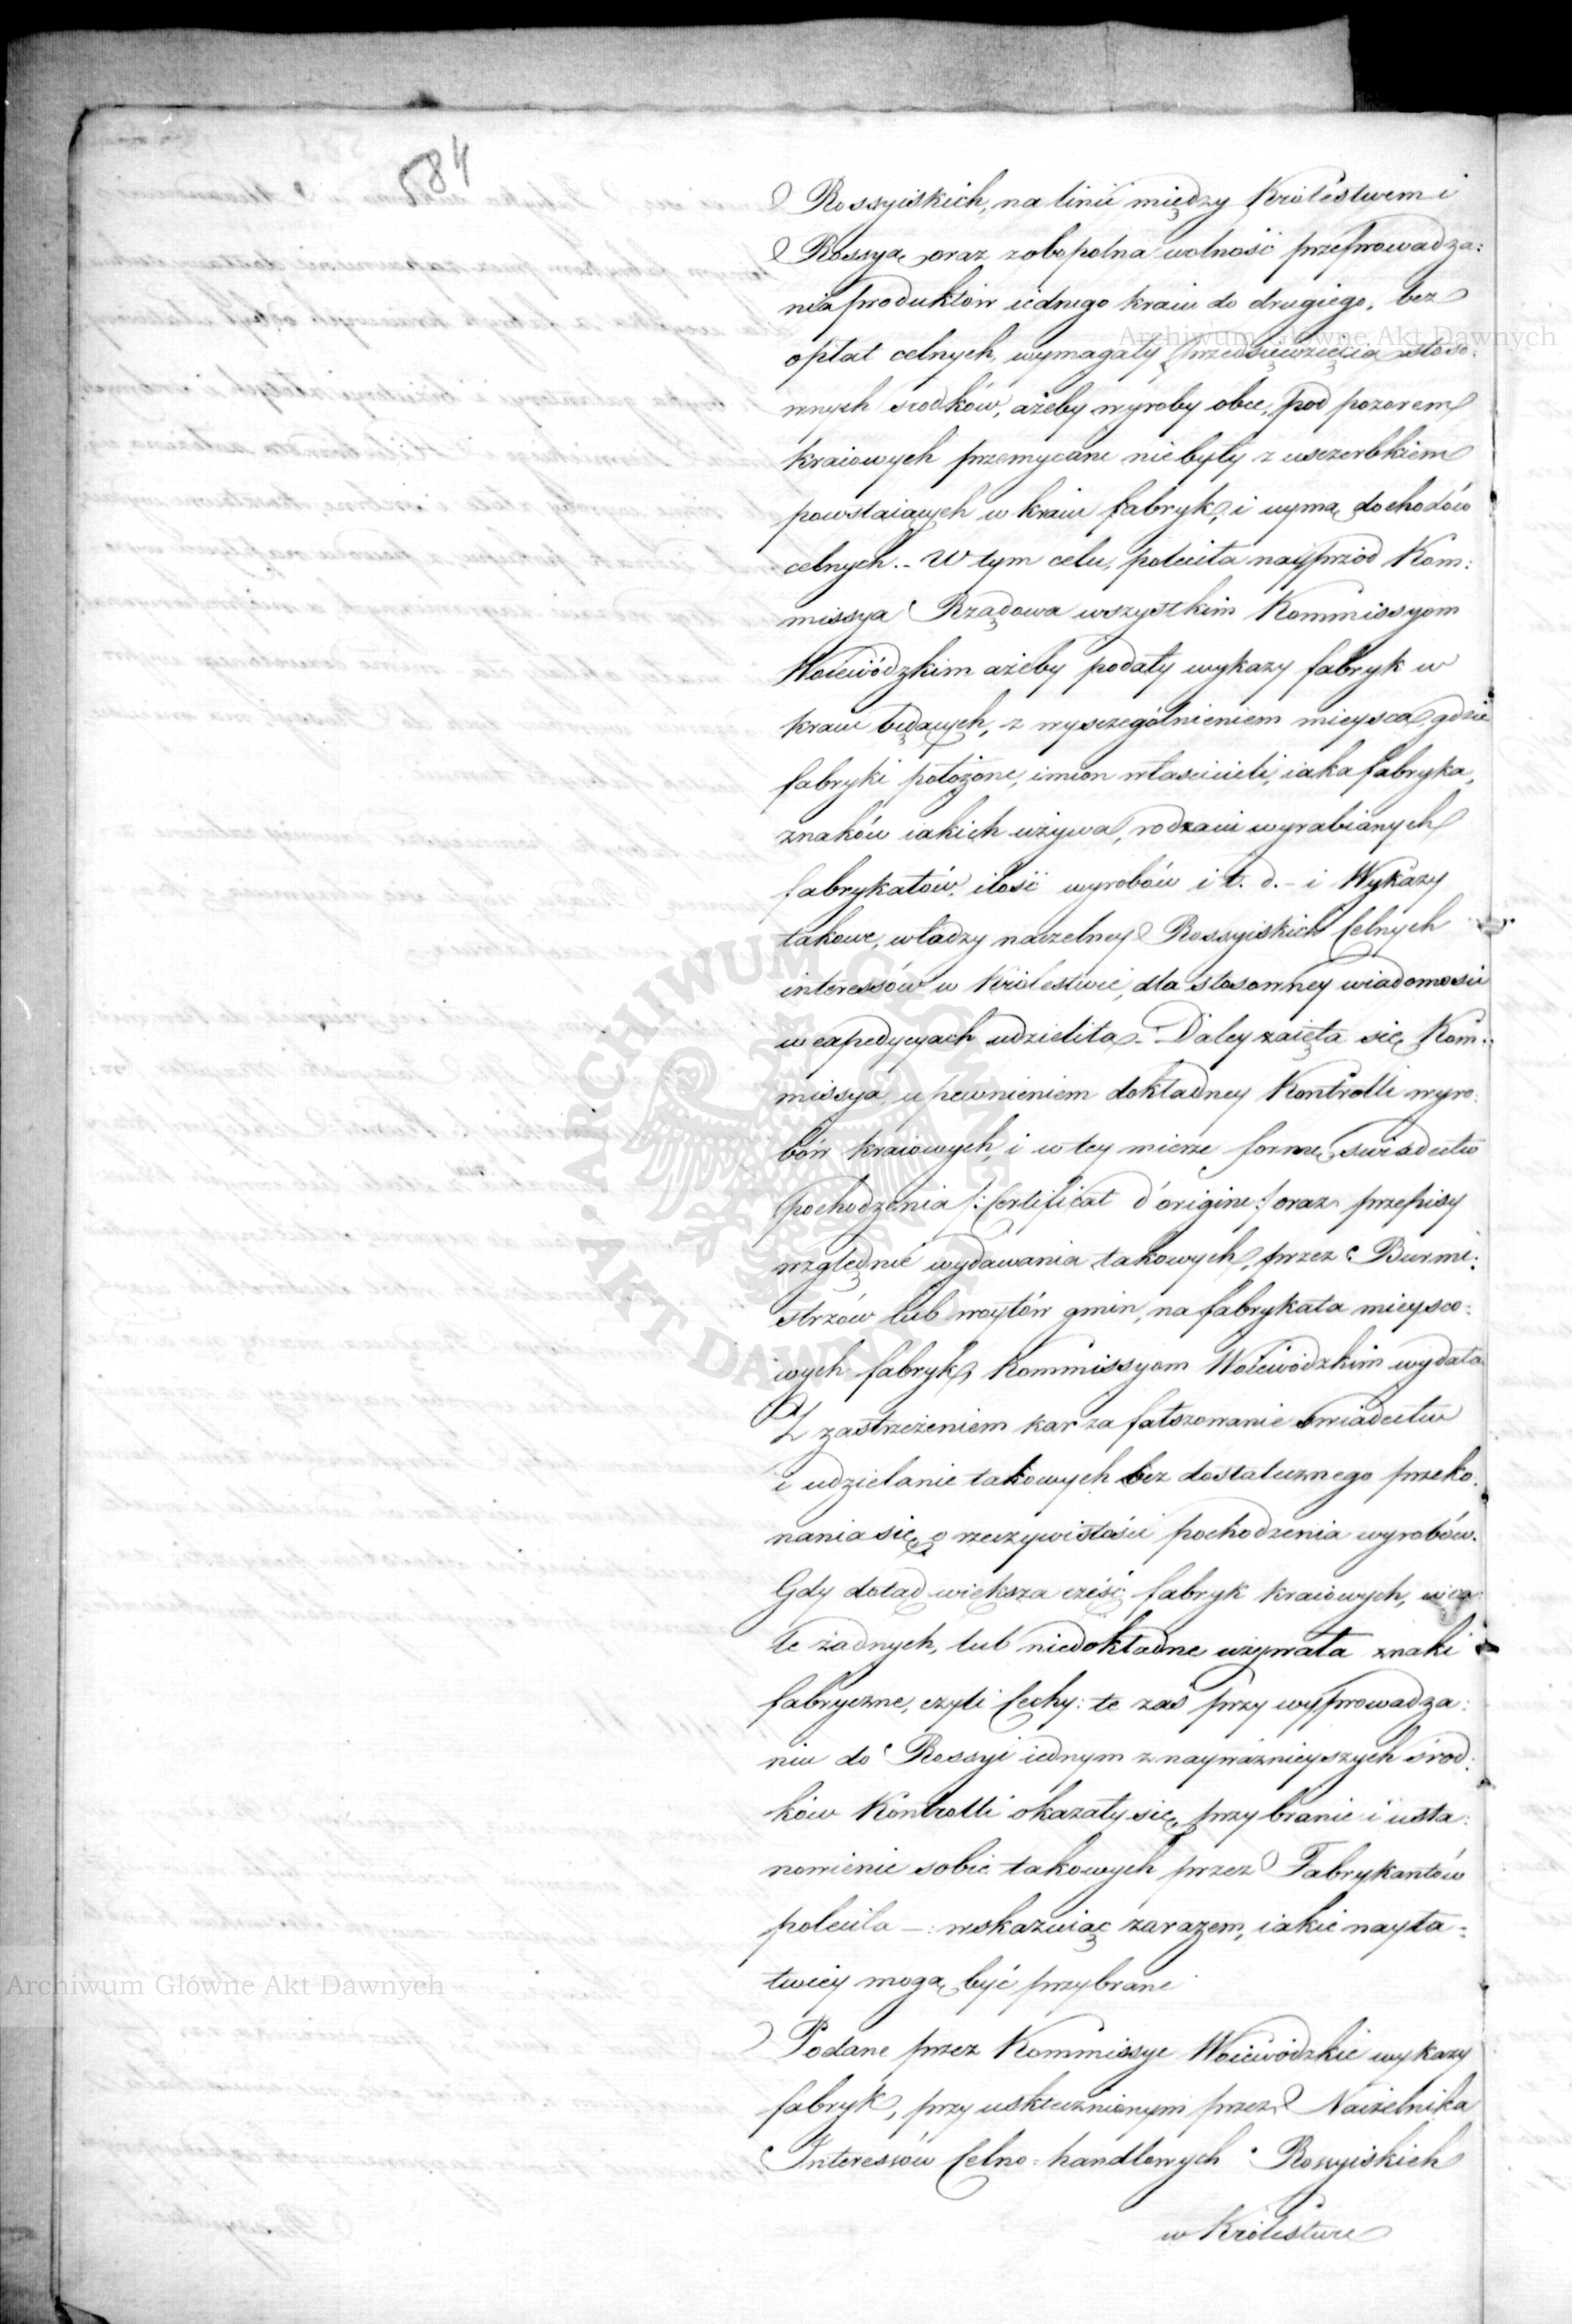 584
Rossyiskich, na linii między Królestwem i
Rossyą, oraz zobopolna wolność przeprowadza:
nia produktów iednego kraiu do drugiego, bez
Archiwum Główne Akt Dawnych
opłat celnych, wymagały przedsięwzięcia stoso:
wnych srodków, ażeby wyroby obce, pod pozorem
kraiowych przemycane nie były z uszczerbkiem
powstaiących w kraiu fabryk, i uymą dochodów
celnych. - W tym celu, poleciła nayprzod Kom:
missya Rządowa wszystkim Kommissyom
Woiewódzkim ażeby podały wykazy fabryk w
kraiu będących, z wyszczególnieniem mieysca gdzie
fabryki położone, imion właścicieli, iaka fabryka,
znaków iakich używa, rodzaiu wyrabianych
fabrykatów, ilość wyrobów i t. d. - i Wykazy
takowe, władzy naczelney Rossyiskich Celnych
interessów w Królestwie, dla stosowney wiadomości
w expedycyach udzieliła. - Daley zaięła się Kom:
missya upewnieniem dokładney Kontrolli wyro:
bów kraiowych, i w tey mierze formę swiadectw
pochodzenia /: Certificat d'origine :/ oraz przepisy
względnie wydawania takowych, przez Burmi:
strzów lub woytów gmin, na fabrykata mieysco:
wych fabryk, Kommissyom Woiewódzkim wydała
Z zastrzeżeniem kar za fałszowanie swiadectw
i udzielanie takowych bez dostatecznego przeko:
nania się o rzeczywistości pochodzenia wyrobów.
Gdy dotąd większa część fabryk kraiowych, wca:
le żadnych, lub niedokładne używała znaki
fabryczne, czyli Cechy: te zaś przy wyprowadza:
niu do Rossyi iednym z nayważnieyszych środ:
ków Kontrolli okazały się, przybranie i usta:
nowienie sobie takowych przez Fabrykantów
poleciła —: wskazuiąc zarazem, iakie nayła:
twiey mogą być przybrane
Archiwum Główne Akt Dawnych
Podane przez Kommissye Woiewódzkie wykazy
fabryk, przy uskutecznionym przez Naczelnika
Interessów Celno-handlowych Rossyiskich
w Królestwie
ARCHIWUM GŁÓWNE AKT DAWNYCH